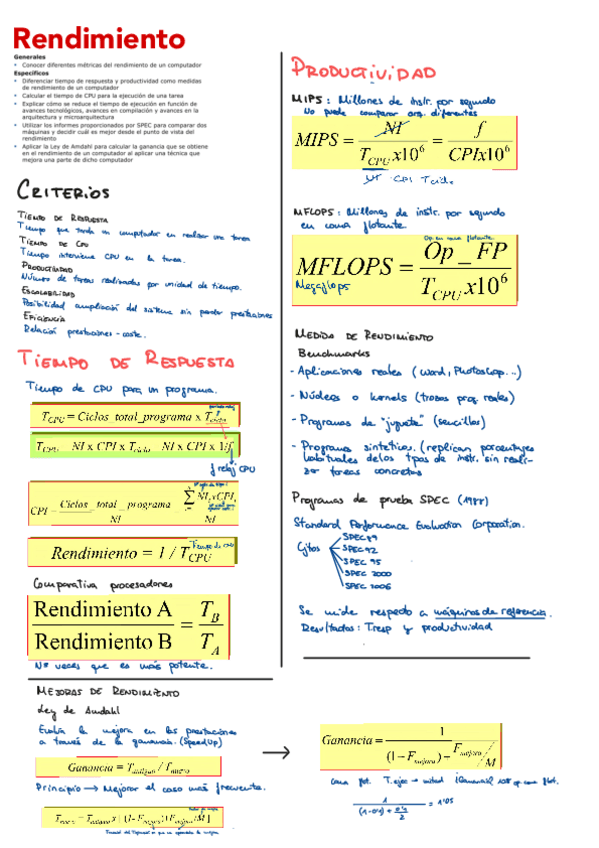 Rendimiento
Generales
• Conocer diferentes métricas del rendimiento de un computador
Específicos
• Diferenciar tiempo de respuesta y productividad como medidas
de rendimiento de un computador
• Calcular el tiempo de CPU para la ejecución de una tarea
• Explicar cómo se reduce el tiempo de ejecución en función de
avances tecnológicos, avances en compilación y avances en la
arquitectura y microarquitectura
• Utilizar los informes proporcionados por SPEC para comparar dos
máquinas y decidir cuál es mejor desde el punto de vista del
rendimiento
• Aplicar la Ley de Amdahl para calcular la ganancia que se obtiene
en el rendimiento de un computador al aplicar una técnica que
mejora una parte de dicho computador
CRITERIOS
TIEMPO DE RESPUESTA
Tiempo que tarda un computador en realizar una tarea
TIEMPO DE CPU
Tiempo interviene CPU en la tarea.
PRODUCTIVIDAD
Número de tareas realizadas por unidad de tiempo.
ESCALABILIDAD
Posibilidad ampliación del sistema sin perder prestaciones
EFICIENCIA
Relación prestaciones - coste.
TIEMPO DE RESPUESTA
Tiempo de CPU para un programa.
T_CPU = Ciclos_total_programa x T_ciclo
T_CPU = NI x CPI x T_ciclo = NI x CPI x 1/f
f reloj CPU
CPI = Ciclos_total_programa / NI = Σ NI_i x CPI_i / NI
Rendimiento = 1 / T_CPU
Comparativa procesadores
Rendimiento A / Rendimiento B = T_B / T_A
Nº veces que es más potente.
MEJORAS DE RENDIMIENTO
Ley de Amdahl
Evalúa la mejora en las prestaciones
a través de la ganancia. (SpeedUp)
Ganancia = T_antiguo / T_nuevo
Principio → Mejorar el caso más frecuente.
T_nuevo = T_antiguo x [(1-F_mejora)+F_mejora/M]
PRODUCTIVIDAD
MIPS: Millones de instr. por segundo
No puede comparar arq. diferentes
MIPS = NI / T_CPU x10^6 = f / CPIx10^6
NI · CPI · T ciclo
MFLOPS: Millones de instr. por segundo
en coma flotante.
Op en coma flotante.
MFLOPS = Op_FP / T_CPU x10^6
Megaflops
MEDIDA DE RENDIMIENTO
Benchmarks
- Aplicaciones reales (Word, Photoshop...)
- Núcleos o kernels (trozos prog. reales)
- Programas de "juguete" (sencillos)
- Programas sintéticos. (replican porcentajes
habituales de los tipos de instr. sin reali-
zar tareas concretas
Programas de prueba SPEC (1988)
Standard Performance Evaluation Corporation.
SPEC89
Cjtos SPEC92
SPEC 95
SPEC 2000
SPEC 2006
Se mide respecto a máquinas de referencia.
Resultados: Tresp y productividad
→
Ganancia = 1 / (1-F_mejora)+F_mejora/M
1 / (1-0'1) + 0'1/2 = 1'05